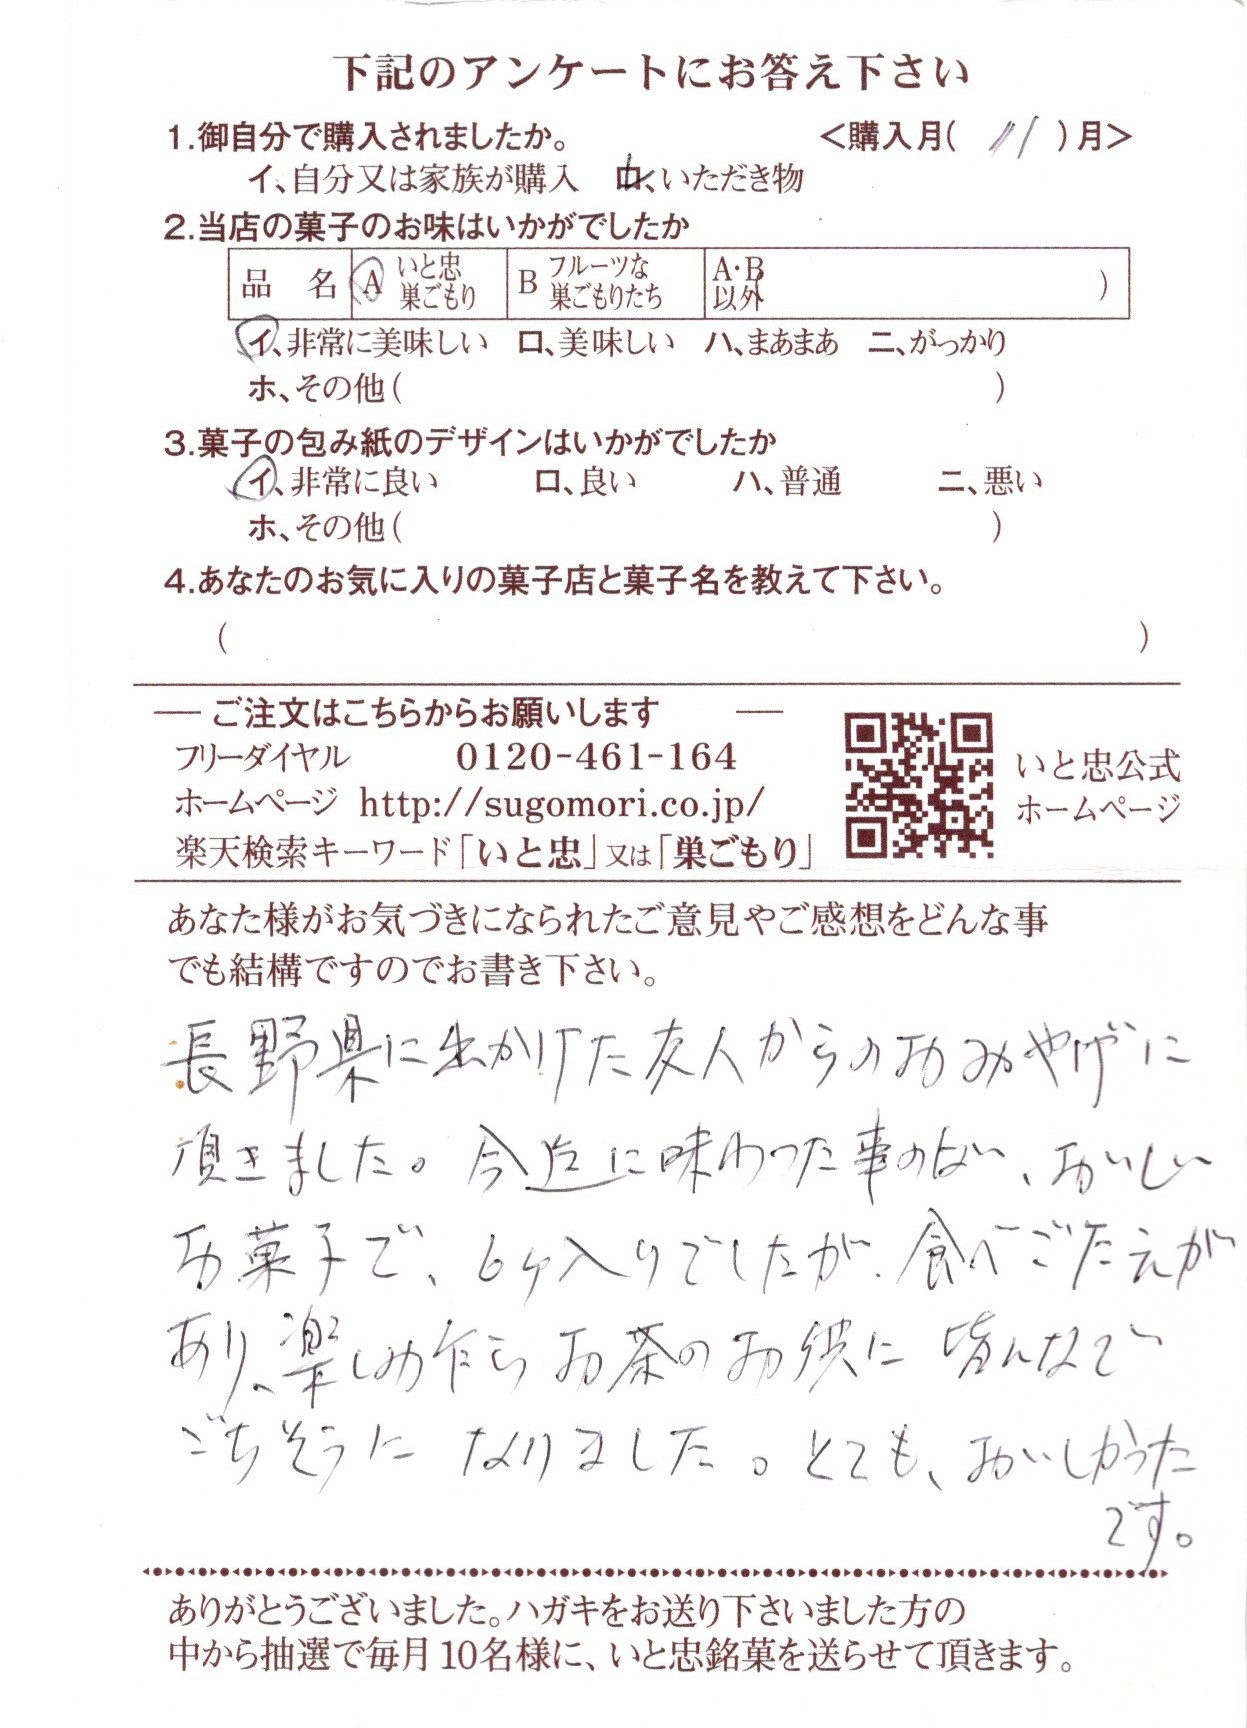 下記のアンケートにお答え下さい
1.御自分で購入されましたか。 <購入月( 11 )月>
イ、自分又は家族が購入 ロ、いただき物
2.当店の菓子のお味はいかがでしたか
品 名 A いと忠 巣ごもり B フルーツな 巣ごもりたち A・B 以外 )
イ、非常に美味しい ロ、美味しい ハ、まあまあ ニ、がっかり
ホ、その他( )
3.菓子の包み紙のデザインはいかがでしたか
イ、非常に良い ロ、良い ハ、普通 ニ、悪い
ホ、その他( )
4.あなたのお気に入りの菓子店と菓子名を教えて下さい。
( )
― ご注文はこちらからお願いします ―
フリーダイヤル 0120-461-164
ホームページ http://sugomori.co.jp/
楽天検索キーワード「いと忠」又は「巣ごもり」
いと忠公式
ホームページ
あなた様がお気づきになられたご意見やご感想をどんな事
でも結構ですのでお書き下さい。
長野県に出かけた友人からのおみやげに
頂きました。今迄に味わった事のない、おいしい
お菓子で、6ケ入りでしたが、食べごたえが
あり、楽しみ乍らお茶のお供に皆んなで
ごちそうになりました。とても、おいしかった
です。
ありがとうございました。ハガキをお送り下さいました方の
中から抽選で毎月10名様に、いと忠銘菓を送らせて頂きます。